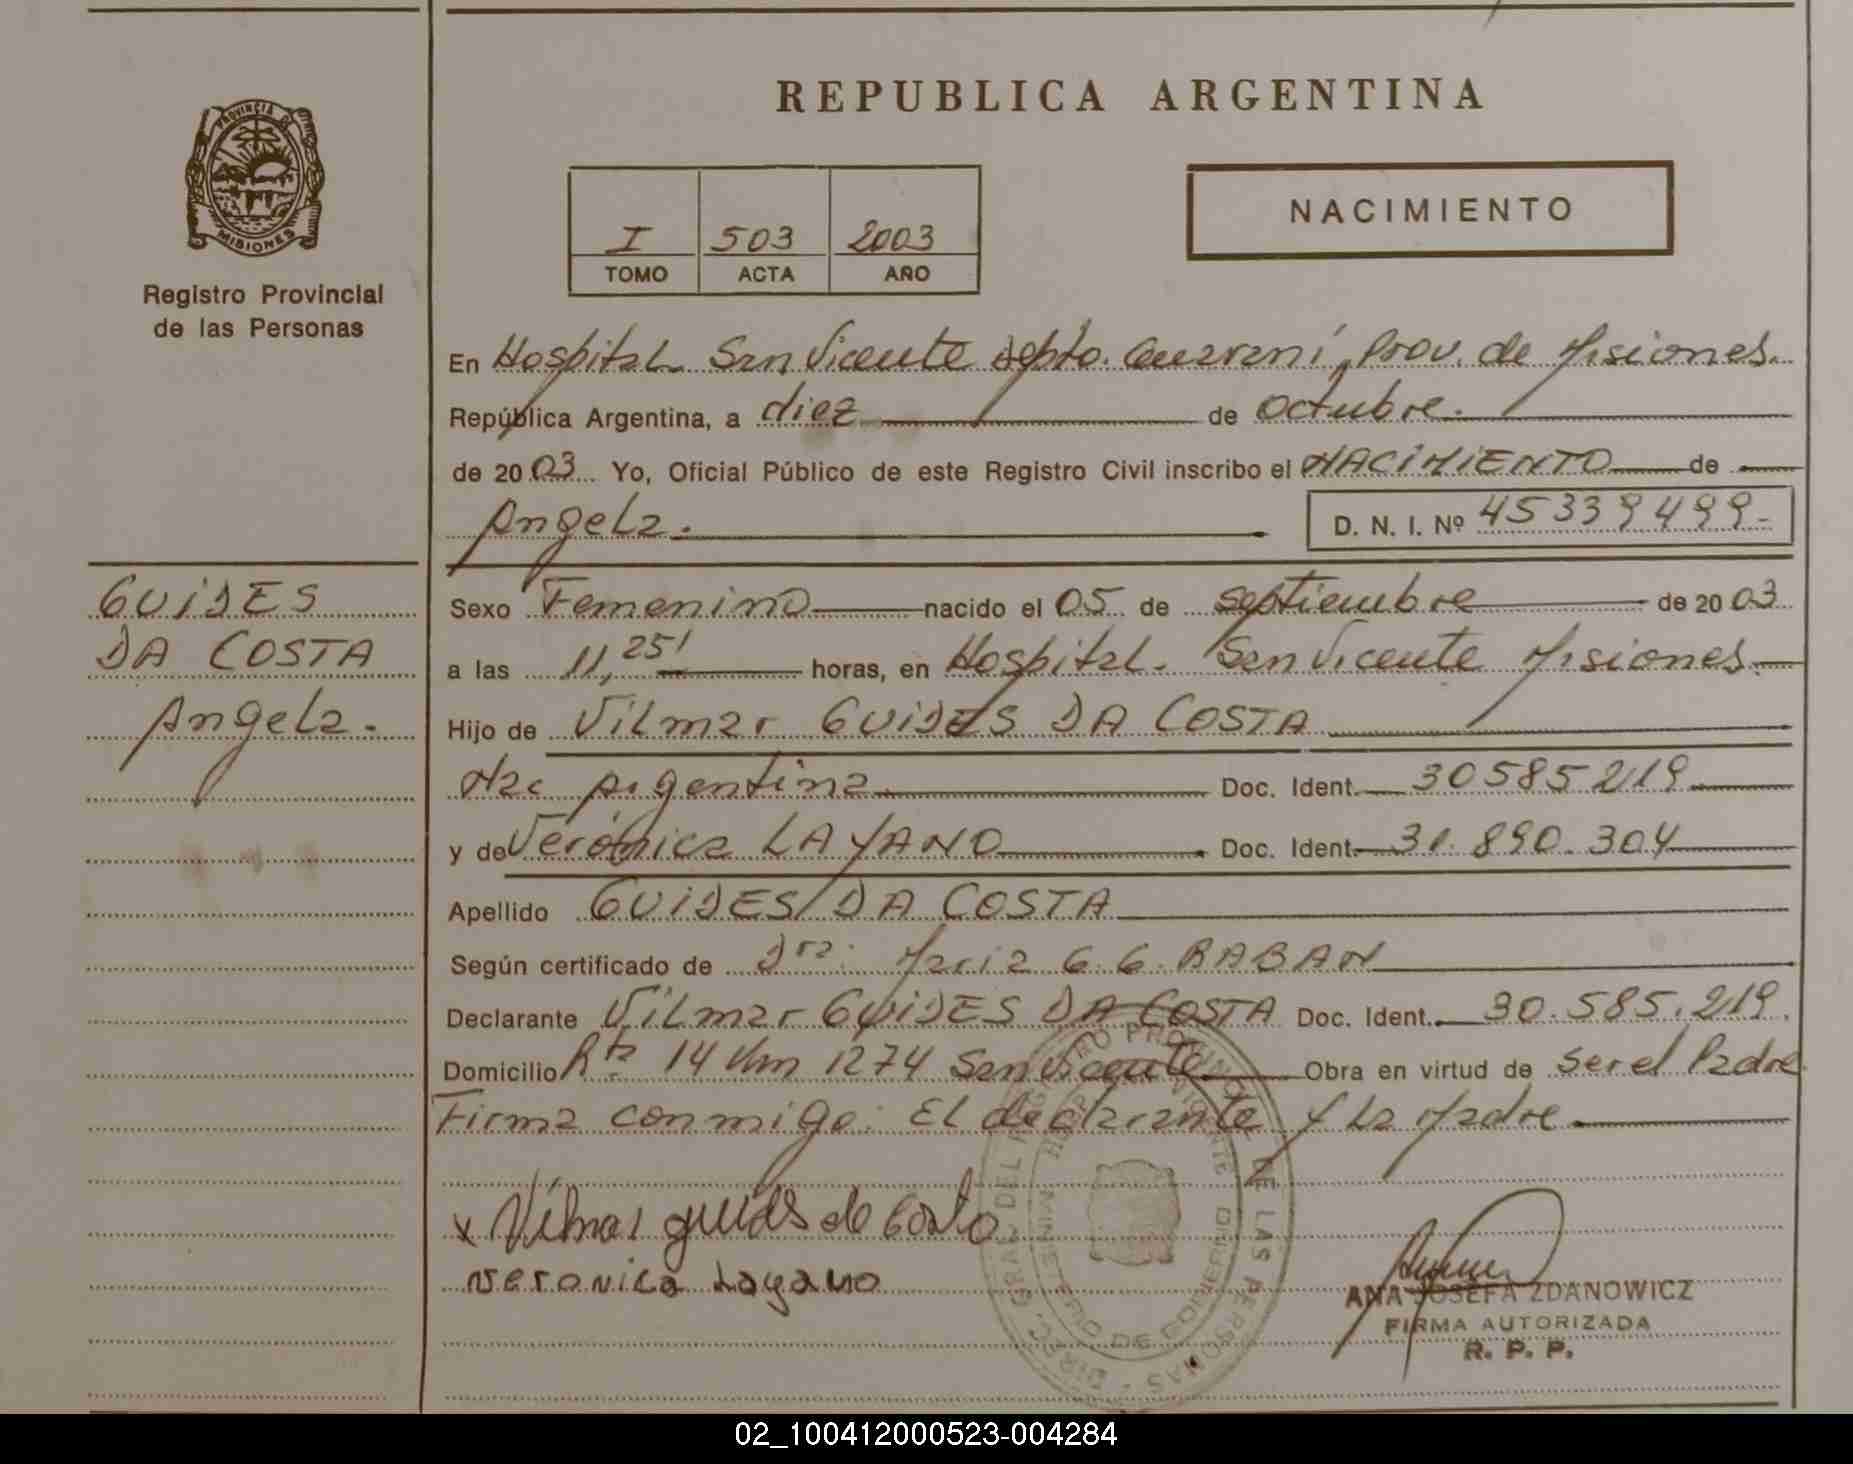 REPUBLICA ARGENTINA
PROVINCIA DE
MISIONES
Registro Provincial
de las Personas
I 503 2003
TOMO ACTA AÑO
NACIMIENTO
En Hospital San Vicente Depto. Guaraní, Prov. de Misiones.
República Argentina, a diez de octubre.
de 2003 Yo, Oficial Público de este Registro Civil inscribo el NACIMIENTO de
Angela.
D. N. I. Nº 45339499-
GUIDES
DA COSTA
Angela.
Sexo Femenino nacido el 05 de septiembre de 2003
a las 11,25' horas, en Hospital. San Vicente Misiones.
Hijo de Vilmar GUIDES DA COSTA
Nac Argentina Doc. Ident. 30585219
y de Verónica LAYANO Doc. Ident. 31.890.304
Apellido GUIDES DA COSTA
Según certificado de Dra. María G. G. RABAN
Declarante Vilmar GUIDES DA COSTA Doc. Ident. 30.585.219.
Domicilio Rta 14 Km 1274 San Vicente Obra en virtud de ser el Padre.
Firma conmigo: El declarante y la Madre
x Vilmar guides da Costa
veronica Layano
ANA JOSEFA ZDANOWICZ
FIRMA AUTORIZADA
R. P. P.
02_100412000523-004284